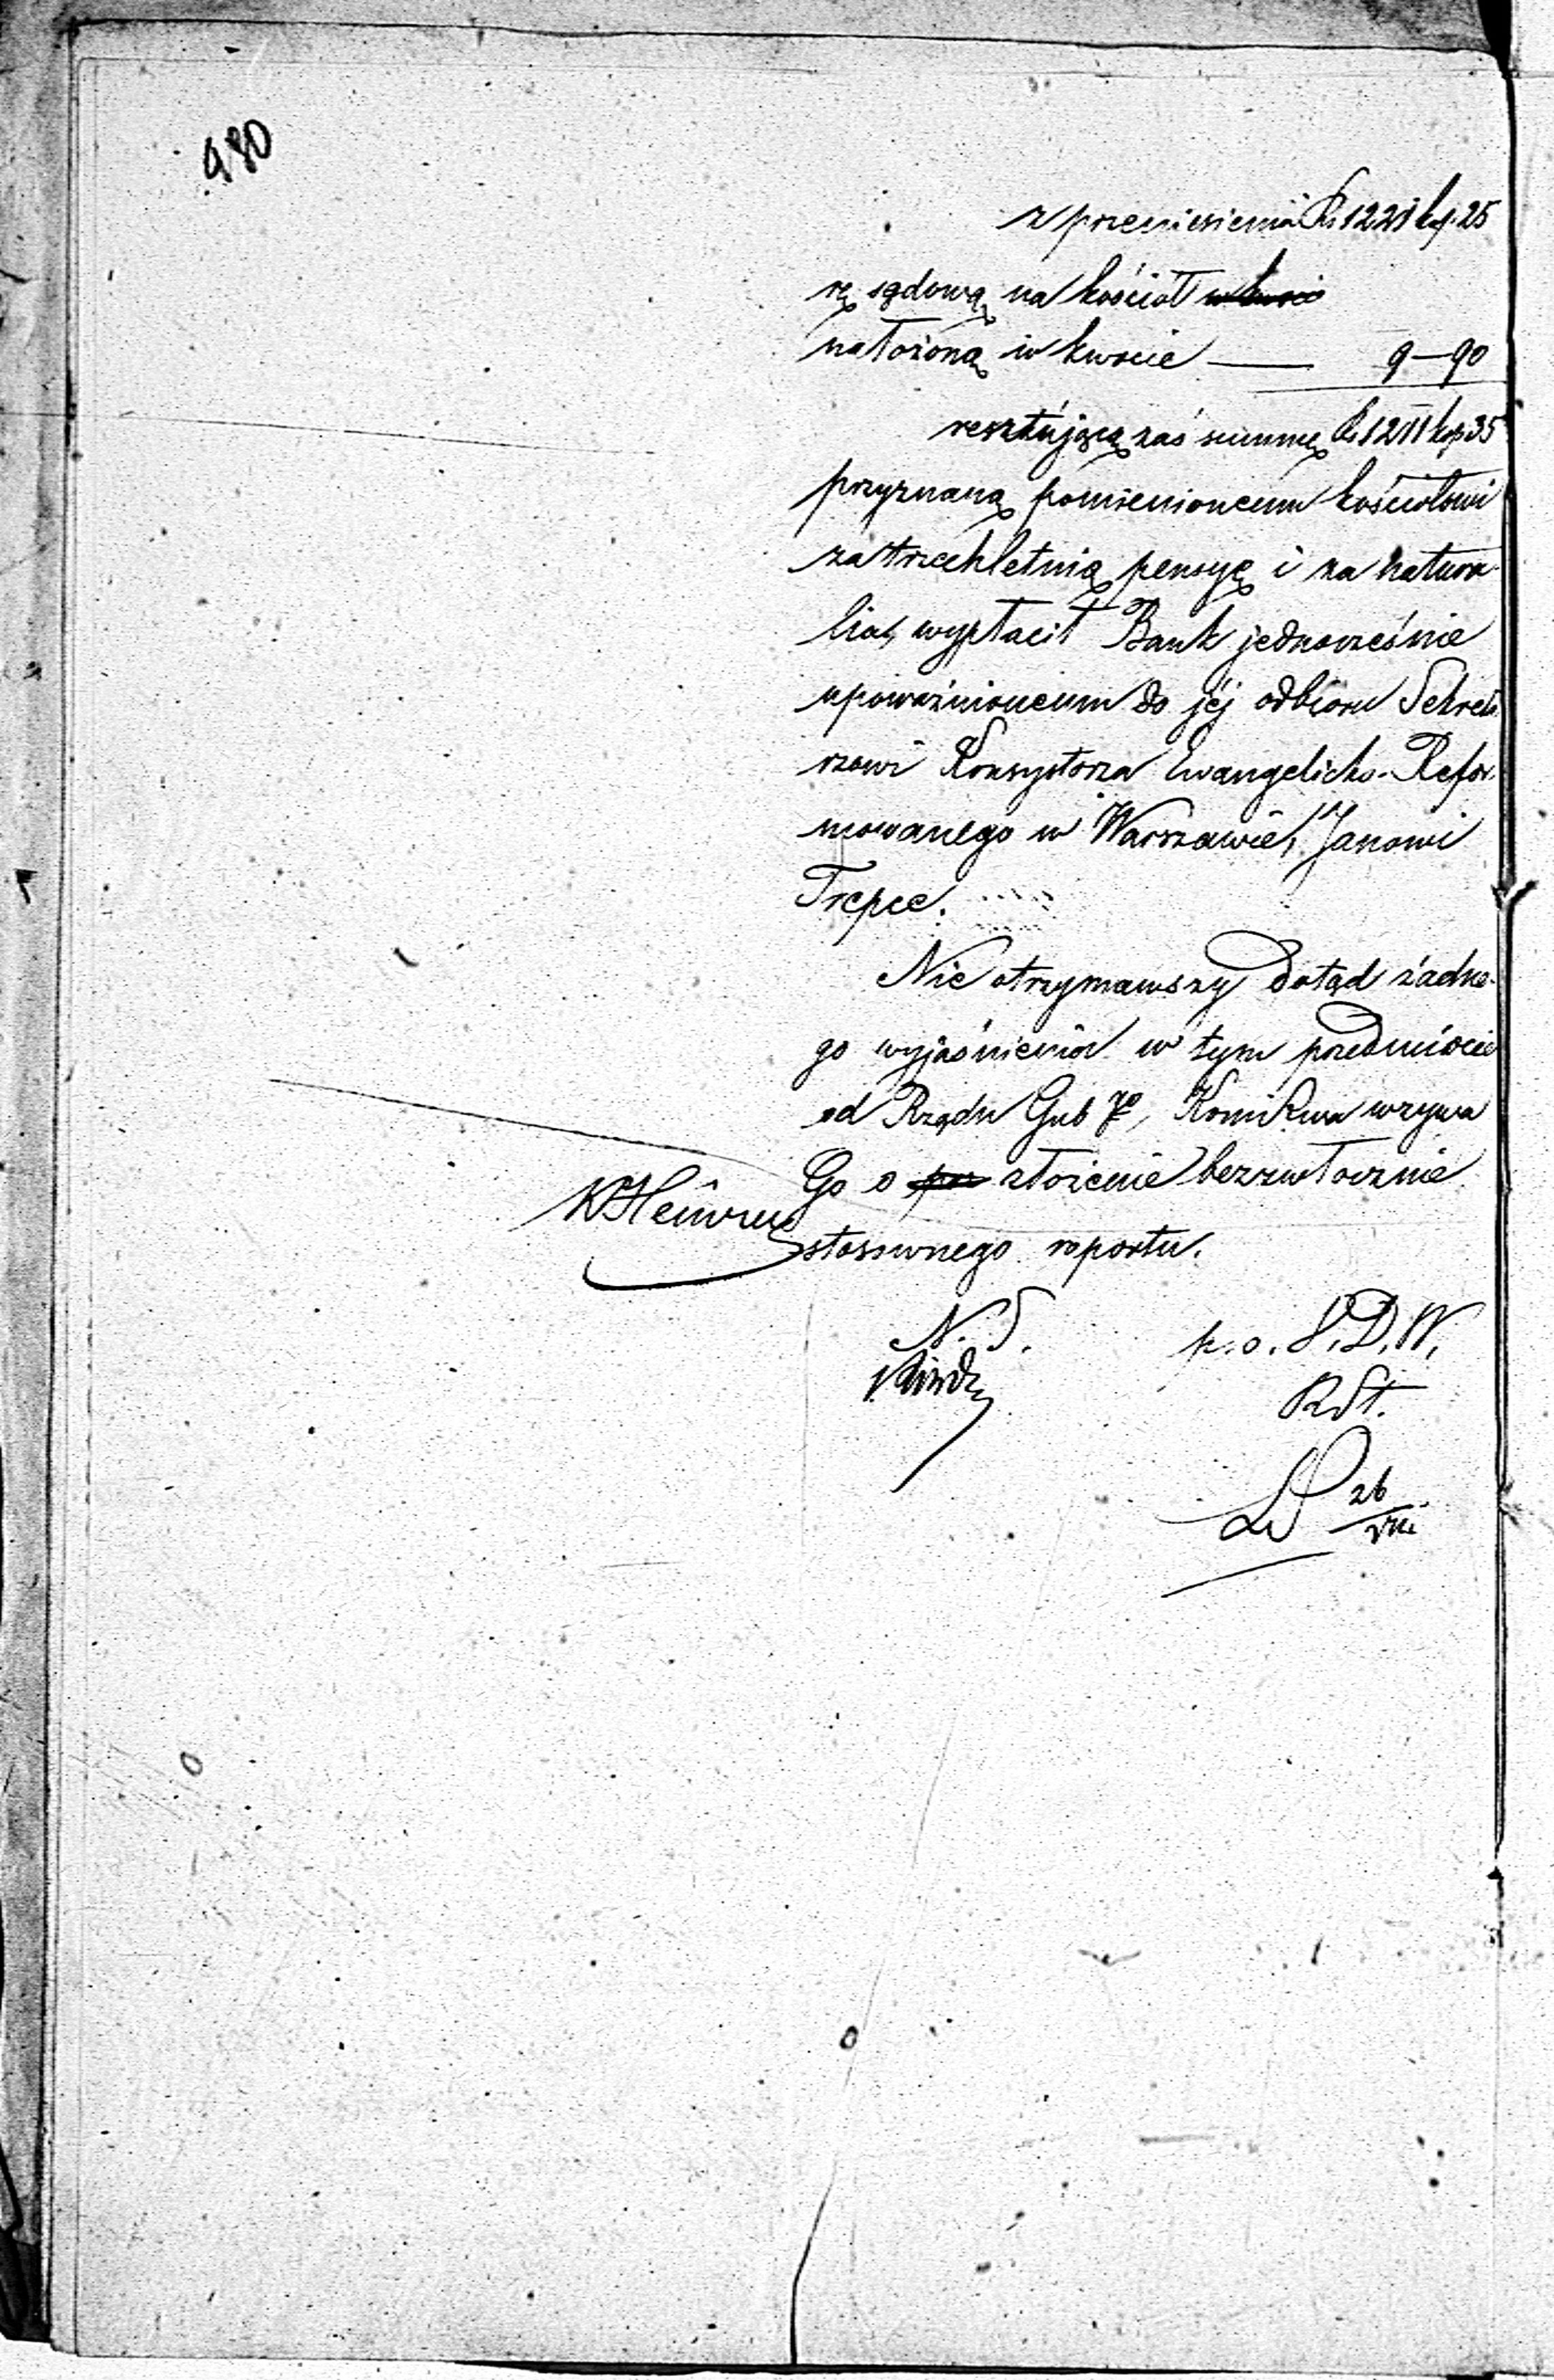 480
z przeniesienia Rs 1221 kop. 25
rę sądową na kościół w kwocie
nałożoną w kwocie — 9—90
resztującą zaś summę Rs 1211 kop 35
przyznaną pomienionemu kościołowi
za trzechletnią pensyę i za natura
lia, wypłacił Bank jednocześnie
upoważnionemu do jéj odbioru Sekreta
rzowi Konsystorza Ewangelicko-Refor-
mowanego w Warszawie, Janowi
Trepce.
Nie otrzymawszy dotąd żadne-
go wyjaśnienia w tym przedmiocie
od Rządu Gub go, Kom Rwa wzywa
Go o złożenie bezzwłocznie
stosownego raportu.
N. S. p. o. D. W.
R St.
26